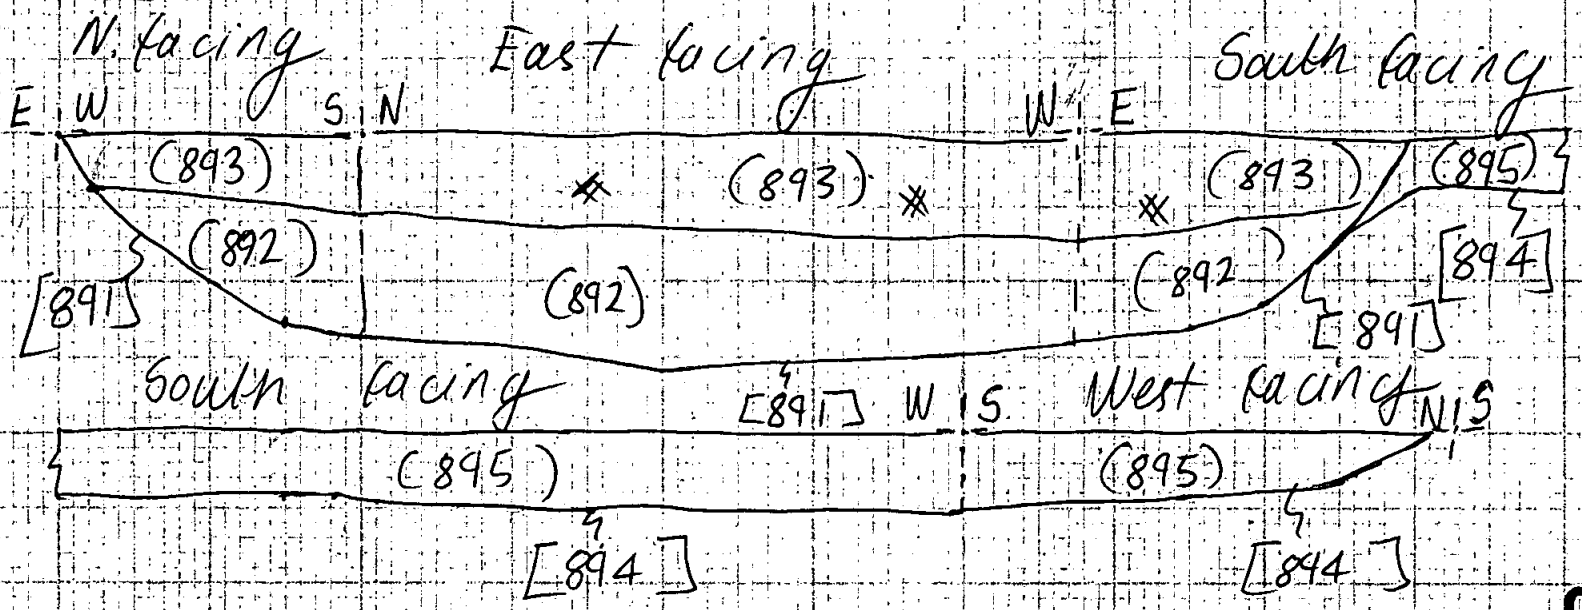 N. facing East facing South facing
E W S N W E
(893) (893) (893) (895)
(892) (892) (892) [894]
[891] [891]
South facing [891] W S West facing N S
(895) (895)
[894] [894]